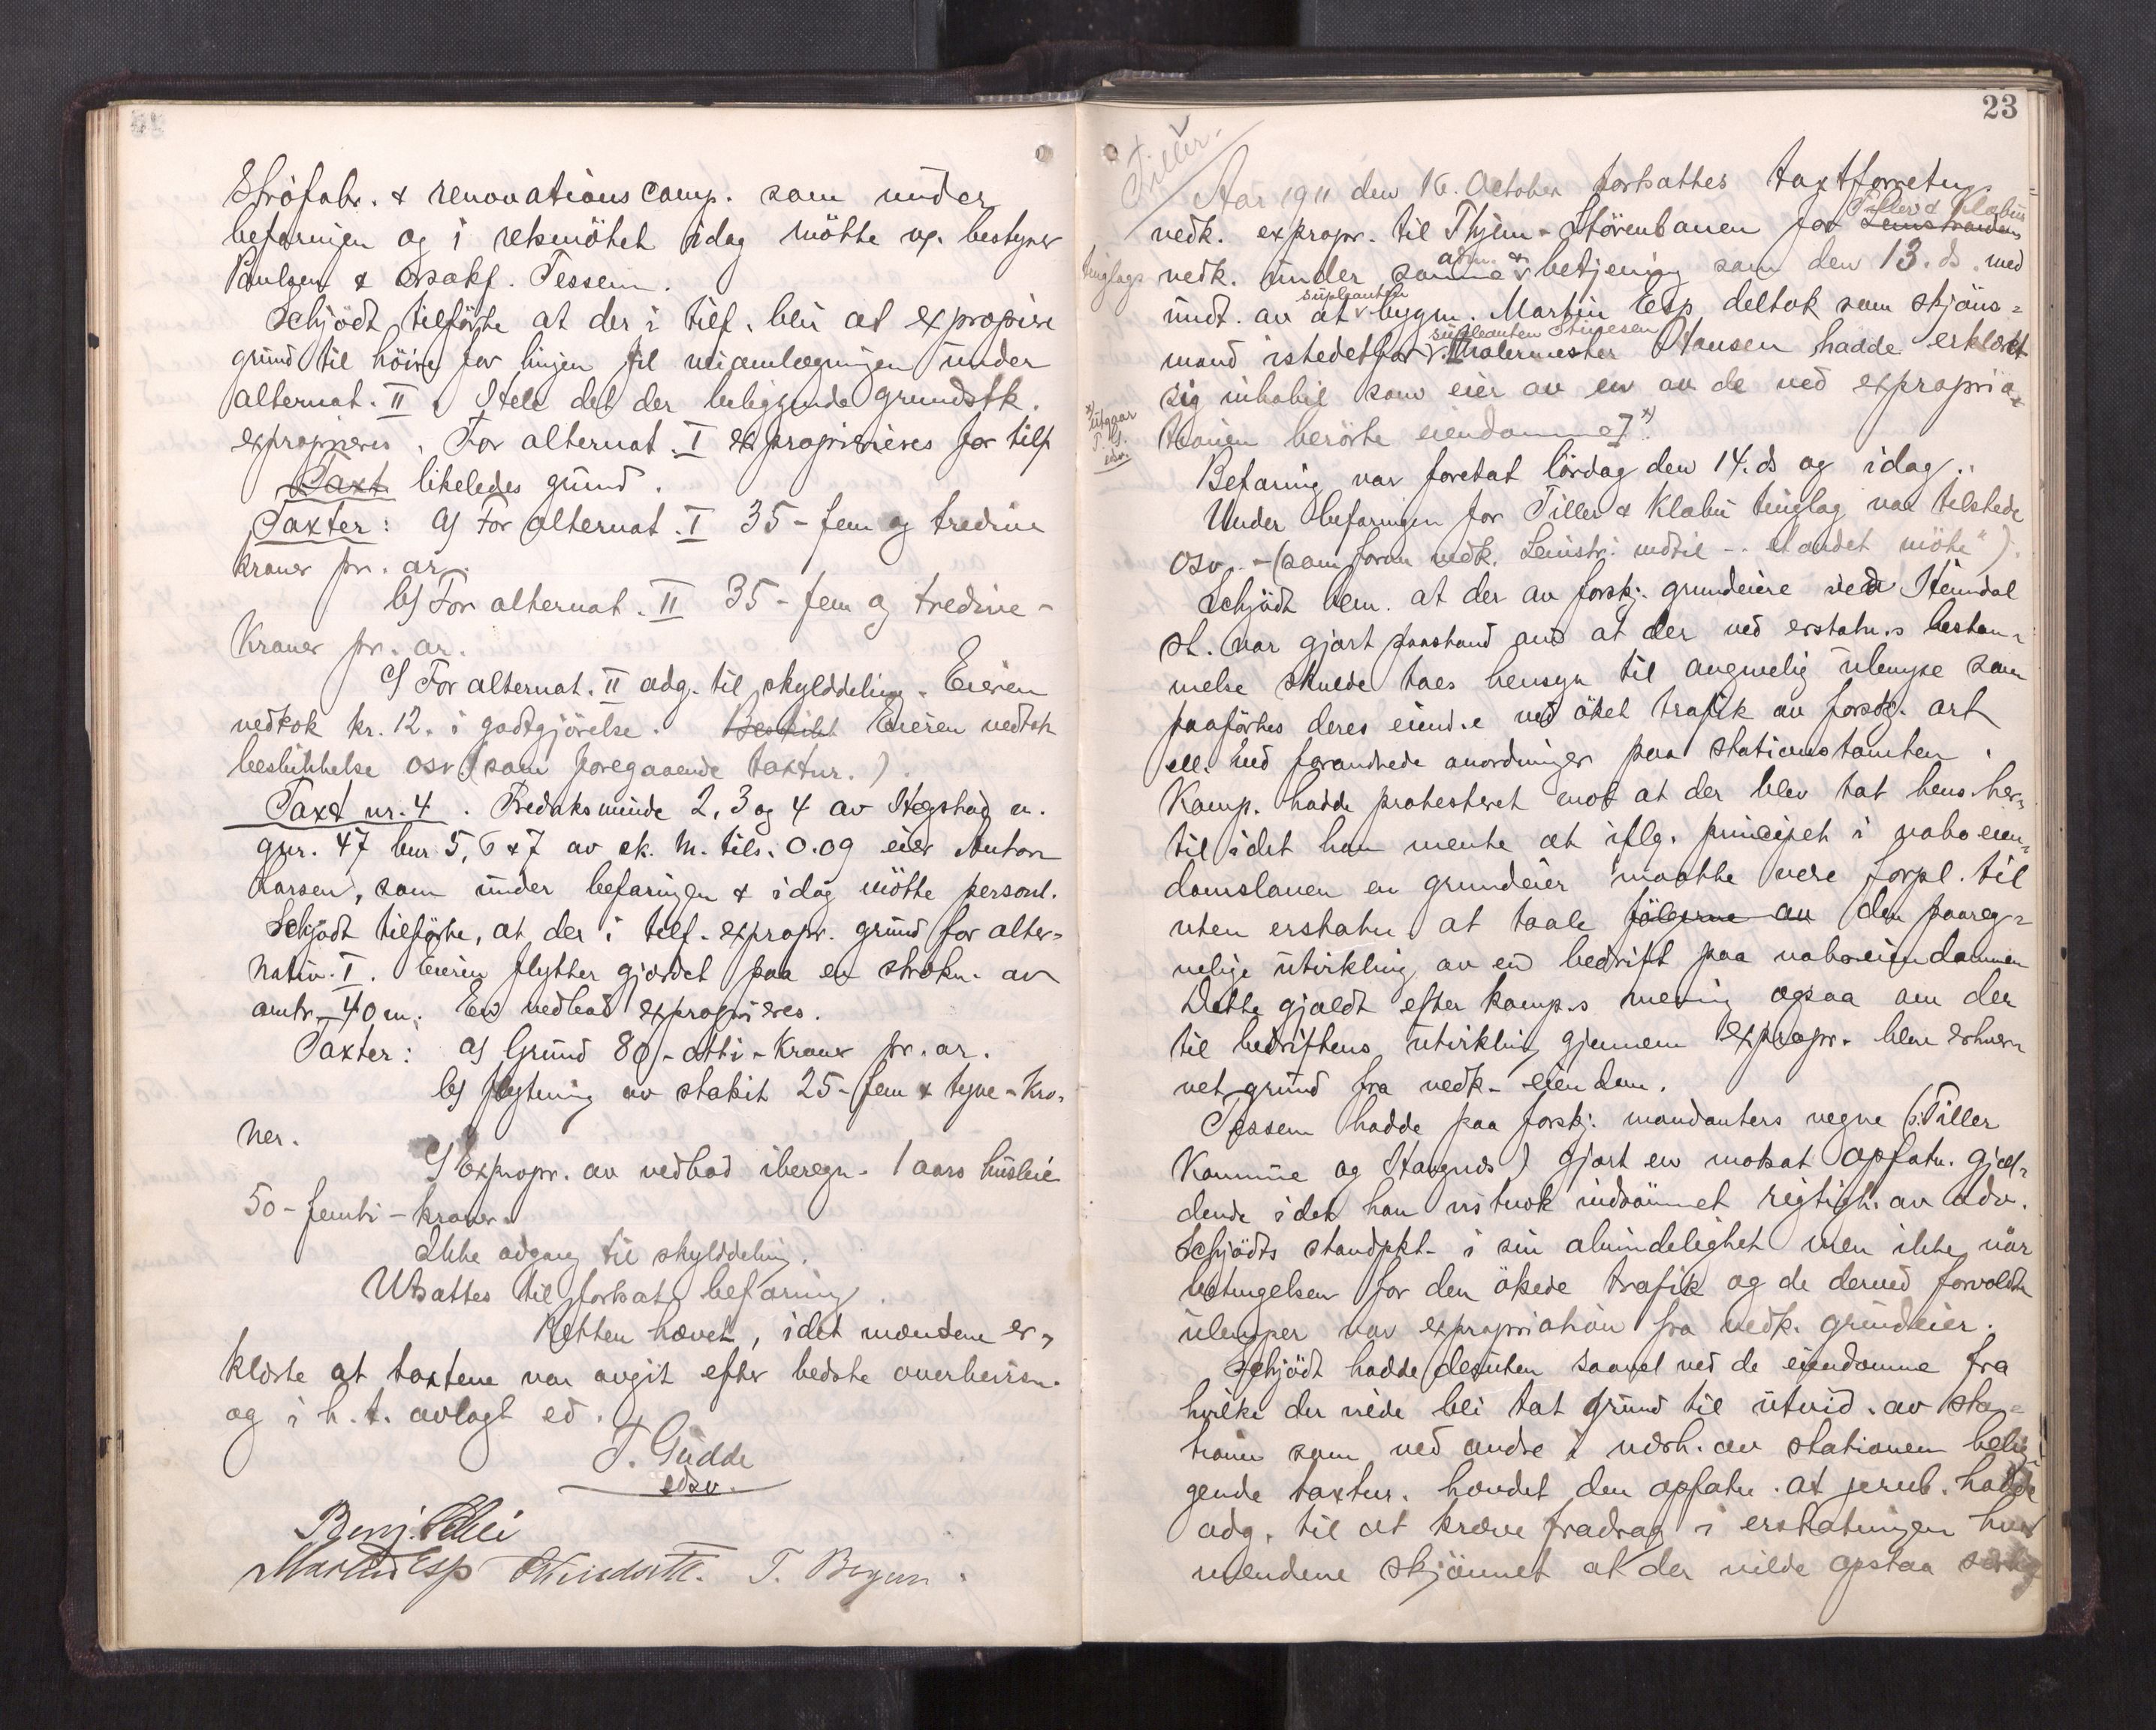 Ströfabr. & renovationscomp. som under
befaringen og i retsmötet idag mötte ved bestyrer
Paulsen & o.r.sakf. Tessem.
Schjödt tilförte at der i tilf. blir at expropiere
grund til höire for linjen til veiomlægningen under
alternat. II. Hele det der beliggende grundstk.
exproprieres. For alternat. I exproprieres for tilf
Taxt likeledes grund.
Taxter: a) For alternat. I 35 - fem og tredive
kroner pr. ar.
b) For alternat. II 35 - fem og tredive -
Kroner pr. ar.
c) For alternat. II adg. til skylddeling. Eieren
vedtok kr. 12. i godtgjörelse. Beskikt Eieren vedtok
beskikkelse osv (som foregaaende taxtnr.).
Taxt nr. 4. Fredaksminde 2, 3 og 4 av Hegstad n.
gnr. 47 bnr 5, 6 & 7 av sk. m. tils. 0.09 eier Anton
Larsen, som under befaringen & idag mötte personl.
Schjödt tilförte, at der i tilf. expropr. grund for alter=
nativ. I. Eieren flytter gjærdet paa en strækn. av
omtr. 40 m. En vedbod exproprieres.
Taxter: a) Grund 80 - otti - Kroner pr. ar.
b) flytning av stakit 25 - fem & tyve - Kro-
ner.
c) Expropr. av vedbod iberegn. 1 aars husleie
50 - femti - kroner.
Ikke adgang til skylddeling.
Utsattes til fortsat befaring.
Retten hævet, idet mændene er-
klærte at taxtene var avgit efter bedste overbevisn.
og i h. t. avlagt ed.
T. Gudde
edsv.
Benj. Schei
Martin Esp T. Bryun
23
Tiller.
Aar 1911 den 16. October fortsattes taxtforretn.
Tiller & Klæbu
vedk. expropr. til Thjem-Störenbanen for Leinstrandens
tinglags
adm. &
vedk. under samme betjening som den 13. ds. med
supleanten
undt. av at bygm. Martin Esp deltok som skjöns=
supleanten
mand istedetfor Malermester Hansen hadde erklært
sig inhabil som eier av en av de ved expropria-
x) Utgaar
T. G.
edsv.
tionen berörte eiendomme]x)
Befaring var foretat lördag den 14. ds og idag.
Under befaringen for Tiller & Klæbu tinglag var tilstede
osv. - (som foran vedk. Leinstr. indtil - . et andet möte").
Schjödt bem. at der av forskj. grundeiere ved Heimdal
st. var gjort paastand om at der ved erstatn.s bestem=
melse skulde taes hensyn til angivelig ulempe som
paaförtes deres eiend.e ved öket trafik av forskj. art
ell. ved forandrede anordninger paa stationstomten.
Komp. hadde protesteret mot at der blev tat hens. her=
til idet han mente at iflg. principet i naboeien=
domsloven en grundeier maatte være forpl. til
uten erstatn. at taale fölgerne av den paareg=
nelige utvikling av en bedrift paa naboeiendommen
Dette gjældt efter komp.s mening ogsaa om der
til bedriftens utvikling gjennem expropr. blev erhver-
vet grund fra vedk. eiendom.
Tessem hadde paa forskj. mandanters vegne (i Tiller
Kommune og Haugnæs) gjort en motsat opfatn. gjæl=
dende idet han vistnok indrömmet rigtigh. av adv.
Schjödts standpkt. i sin almindelighet men ikke når
betingelsen for den ökede trafik og de derved forvoldte
ulemper var expropriation fra vedk. grundeier.
Schjödt hadde desuten saavel ved de eiendomme fra
hvilke der vilde bli tat grund til utvid. av sta=
tionen som ved andre i nærh. av stationen belig=
gende taxtnr. hævdet den opfatn. at jernb. hadde
adg. til at kræve fradrag i erstatningen hvis
mændene skjönnet at der vilde opstaa særlig